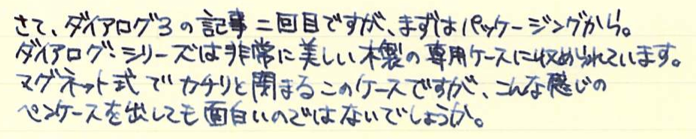 さて、ダイアログ3の記事二回目ですが、まずはパッケージングから。
ダイアログシリーズは非常に美しい木製の専用ケースに収められています。
マグネット式でカチリと閉まるこのケースですが、こんな感じの
ペンケースを出しても面白いのではないでしょうか。